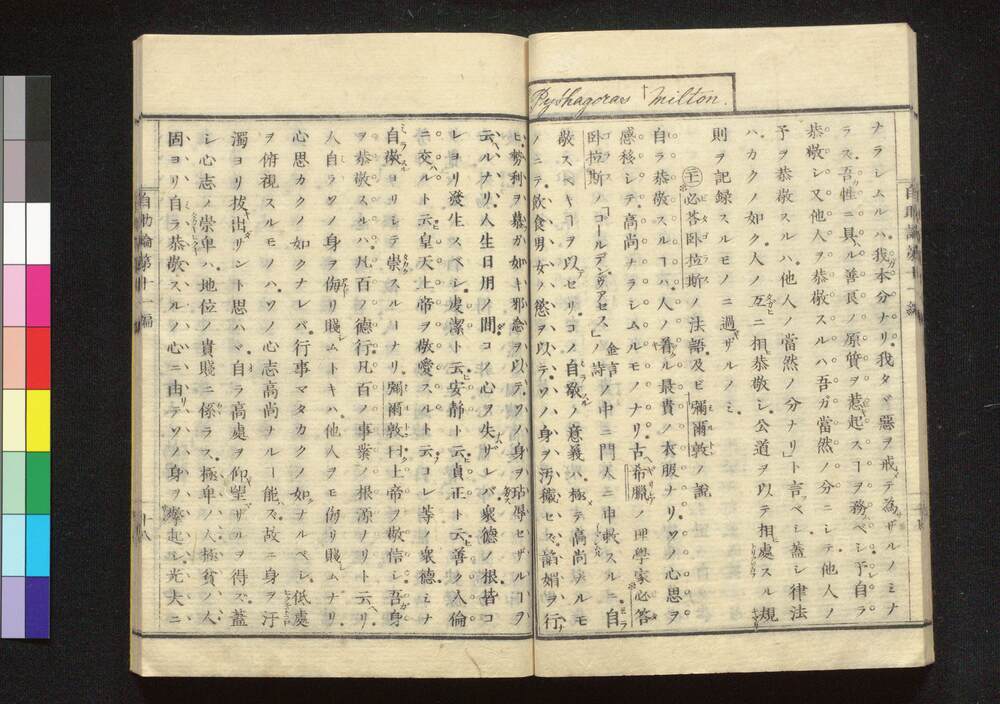 Pythagoras Milton.
ナラシムルハ我本分ナリ我タヾ惡ヲ戒テ為ザルノミナ
ラズ吾性ニ具ル善良ノ原質ヲ惹起スヿヲ務ベシ予自ラ
恭敬シ又他人ヲ恭敬スルハ吾ガ當然ノ分ニシテ他人ノ
予ヲ恭敬スルハ他人ノ當然ノ分ナリ」ト言ベシ蓋シ律法
ハカクノ如ク人ノ互ニ相恭敬シ公道ヲ以テ相處スル規
則ヲ記録スルモノニ過ザルノミ
必答臥拉斯ノ法語及ビ彌爾敦ノ說
自ラ恭敬スルヿハ人ノ着ル最貴ノ衣服ナリソノ心思ヲ
感移シテ高尚ナラシムルモノナリ古希臘ノ理學家必答
臥拉斯ノゴールデンヴアセスノ詩金言ノ中ニ門人ニ申敕スルニ自
敬スベキヿヲ以セリコノ自敬ノ意義ハ極テ高尚ナルモ
ノニテ飲食男女ノ慾ヲ以テソノ身ヲ汚穢セズ諂媚ヲ行
ヒ勢利ヲ慕ガ如キ邪念ヲ以テソノ身ヲ玷辱セザルヿヲ
云ルナリ人生日用ノ間コノ心ヲ失ザレバ衆德ノ根皆コ
レヨリ發生スベシ虔潔ト云安静ト云貞正ト云善ク人倫
ニ交ルト云皇天上帝ヲ敬愛スルト云コレ等ノ衆德ミナ
自敬ヨリシテ崇スルヿナリ彌爾敦曰上帝ヲ敬信シ吾身
ヲ恭敬スルハ凡百ノ德行凡百ノ事業ノ根源ノリト云ヘリ
人自ラソノ身ヲ侮リ賤ムトキハ他人ヲモ侮リ賤ムナリ
心思カクノ如クナレバ行事マタカクノ如ナルベシ低處
ヲ俯視スルモノハソノ心志高尚ナルヿ能ズ故ニ身ヲ汙
濁ヨリ拔出サント思ハヾ自ラ高處ヲ仰望ザルヲ得ズ蓋
シ心志ノ崇卑ハ地位ノ貴賤ニ係ラズ極卑ノ人極貧ノ人
固ヨリ自ラ恭敬スルノ心ニ由テソノ身ヲ擧起シ光大ニ
自助論第十一編
十八